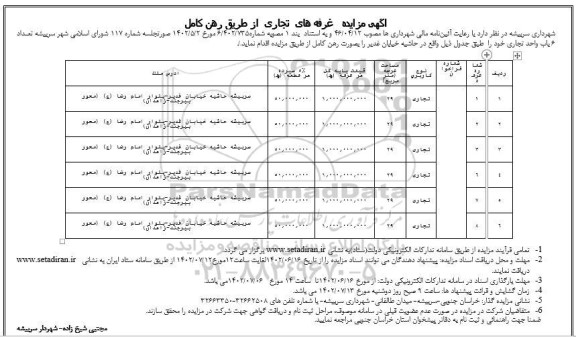 آگهی مزایده غرفه های تجاری از طریق رهن کامل
شهرداری سربیشه در نظر دارد با رعایت آئین‌نامه مالی شهرداری ها مصوب ۴۶/۰۴/۱۲ و به استناد بند ۱ مصوبه شماره ۶/۴۰۲/۷۳۵ مورخ ۱۴۰۲/۵/۲ صورتجلسه شماره ۱۱۷ شورای اسلامی شهر سربیشه تعداد
۶ باب واحد تجاری خود را طبق جدول ذیل واقع در حاشیه خیابان غدیر را بصورت رهن کامل از طریق مزایده اقدام نماید.
ردیف نوع کاربری مساحت عرصه (متر مربع) قیمت پایه کل هر غرفه آدرس ملک
۱ ۱ تجاری ۲۹ ۱,۰۰۰,۰۰۰,۰۰۰ ۵۰,۰۰۰,۰۰۰ سربیشه حاشیه خیابان غدیر-بلوار امام رضا (ع) (محور بیرجند-زاهدان)
۲ ۲ تجاری ۲۹ ۱,۰۰۰,۰۰۰,۰۰۰ ۵۰,۰۰۰,۰۰۰ سربیشه حاشیه خیابان غدیر-بلوار امام رضا (ع) (محور بیرجند-زاهدان)
۳ ۳ تجاری ۲۹ ۱,۰۰۰,۰۰۰,۰۰۰ ۵۰,۰۰۰,۰۰۰ سربیشه حاشیه خیابان غدیر-بلوار امام رضا (ع) (محور بیرجند-زاهدان)
۴ ۶ تجاری ۲۹ ۱,۰۰۰,۰۰۰,۰۰۰ ۵۰,۰۰۰,۰۰۰ سربیشه حاشیه خیابان غدیر-بلوار امام رضا (ع) (محور بیرجند-زاهدان)
۵ ۷ تجاری ۲۹ ۱,۰۰۰,۰۰۰,۰۰۰ ۵۰,۰۰۰,۰۰۰ سربیشه حاشیه خیابان غدیر-بلوار امام رضا (ع) (محور بیرجند-زاهدان)
۶ ۸ تجاری ۲۹ ۱,۰۰۰,۰۰۰,۰۰۰ ۵۰,۰۰۰,۰۰۰ سربیشه حاشیه خیابان غدیر-بلوار امام رضا (ع) (محور بیرجند-زاهدان)
1- تمامی فرآیند مزایده از طریق سامانه تدارکات الکترونیکی دولت(ستاد)به نشانی www.setadiran.ir برگزار می گردد.
2- مهلت و محل دریافت اسناد مزایده: پیشنهاد دهندگان می توانند اسناد مزایده را از تاریخ ۱۴۰۲/۰۶/۱۶ لغایت ساعت ۱۲ مورخ ۱۴۰۲/۰۷/۱۲ از طریق سامانه ستاد ایران به نشانی www.setadiran.ir
دریافت نمایند.
3- مهلت بارگذاری اسناد در سامانه تدارکات الکترونیکی دولت: از مورخ ۱۴۰۲/۰۶/۱۶ تا ساعت ۱۴ مورخ ۱۴۰۲/۰۷/۰۶ می باشد.
4- زمان گشایش و قرائت پیشنهاد ها: ساعت ۹ صبح روز دوشنبه مورخ ۱۴۰۲/۰۷/۱۲ می باشد.
5- نشانی مزایده گذار: خراسان جنوبی-سربیشه-میدان طالقانی-شهرداری سربیشه- با شماره تلفن های ۳۲۶۶۲۵۰۸-۳۲۶۶۳۳۵۰
6- متقاضیان شرکت در مزایده در صورت عدم عضویت قبلی در سامانه موصوف، مراحل ثبت نام و دریافت گواهی جهت شرکت در مزایده را محقق سازند.
ضمنا جهت راهنمائی و ثبت نام به دفاتر پیشخوان استان خراسان جنوبی مراجعه نمایید.
مجتبی شیخ زاده-شهردار سربیشه
ParsNamadData
۰۲۱-۸۸۳۴۹۶۷۰-۵